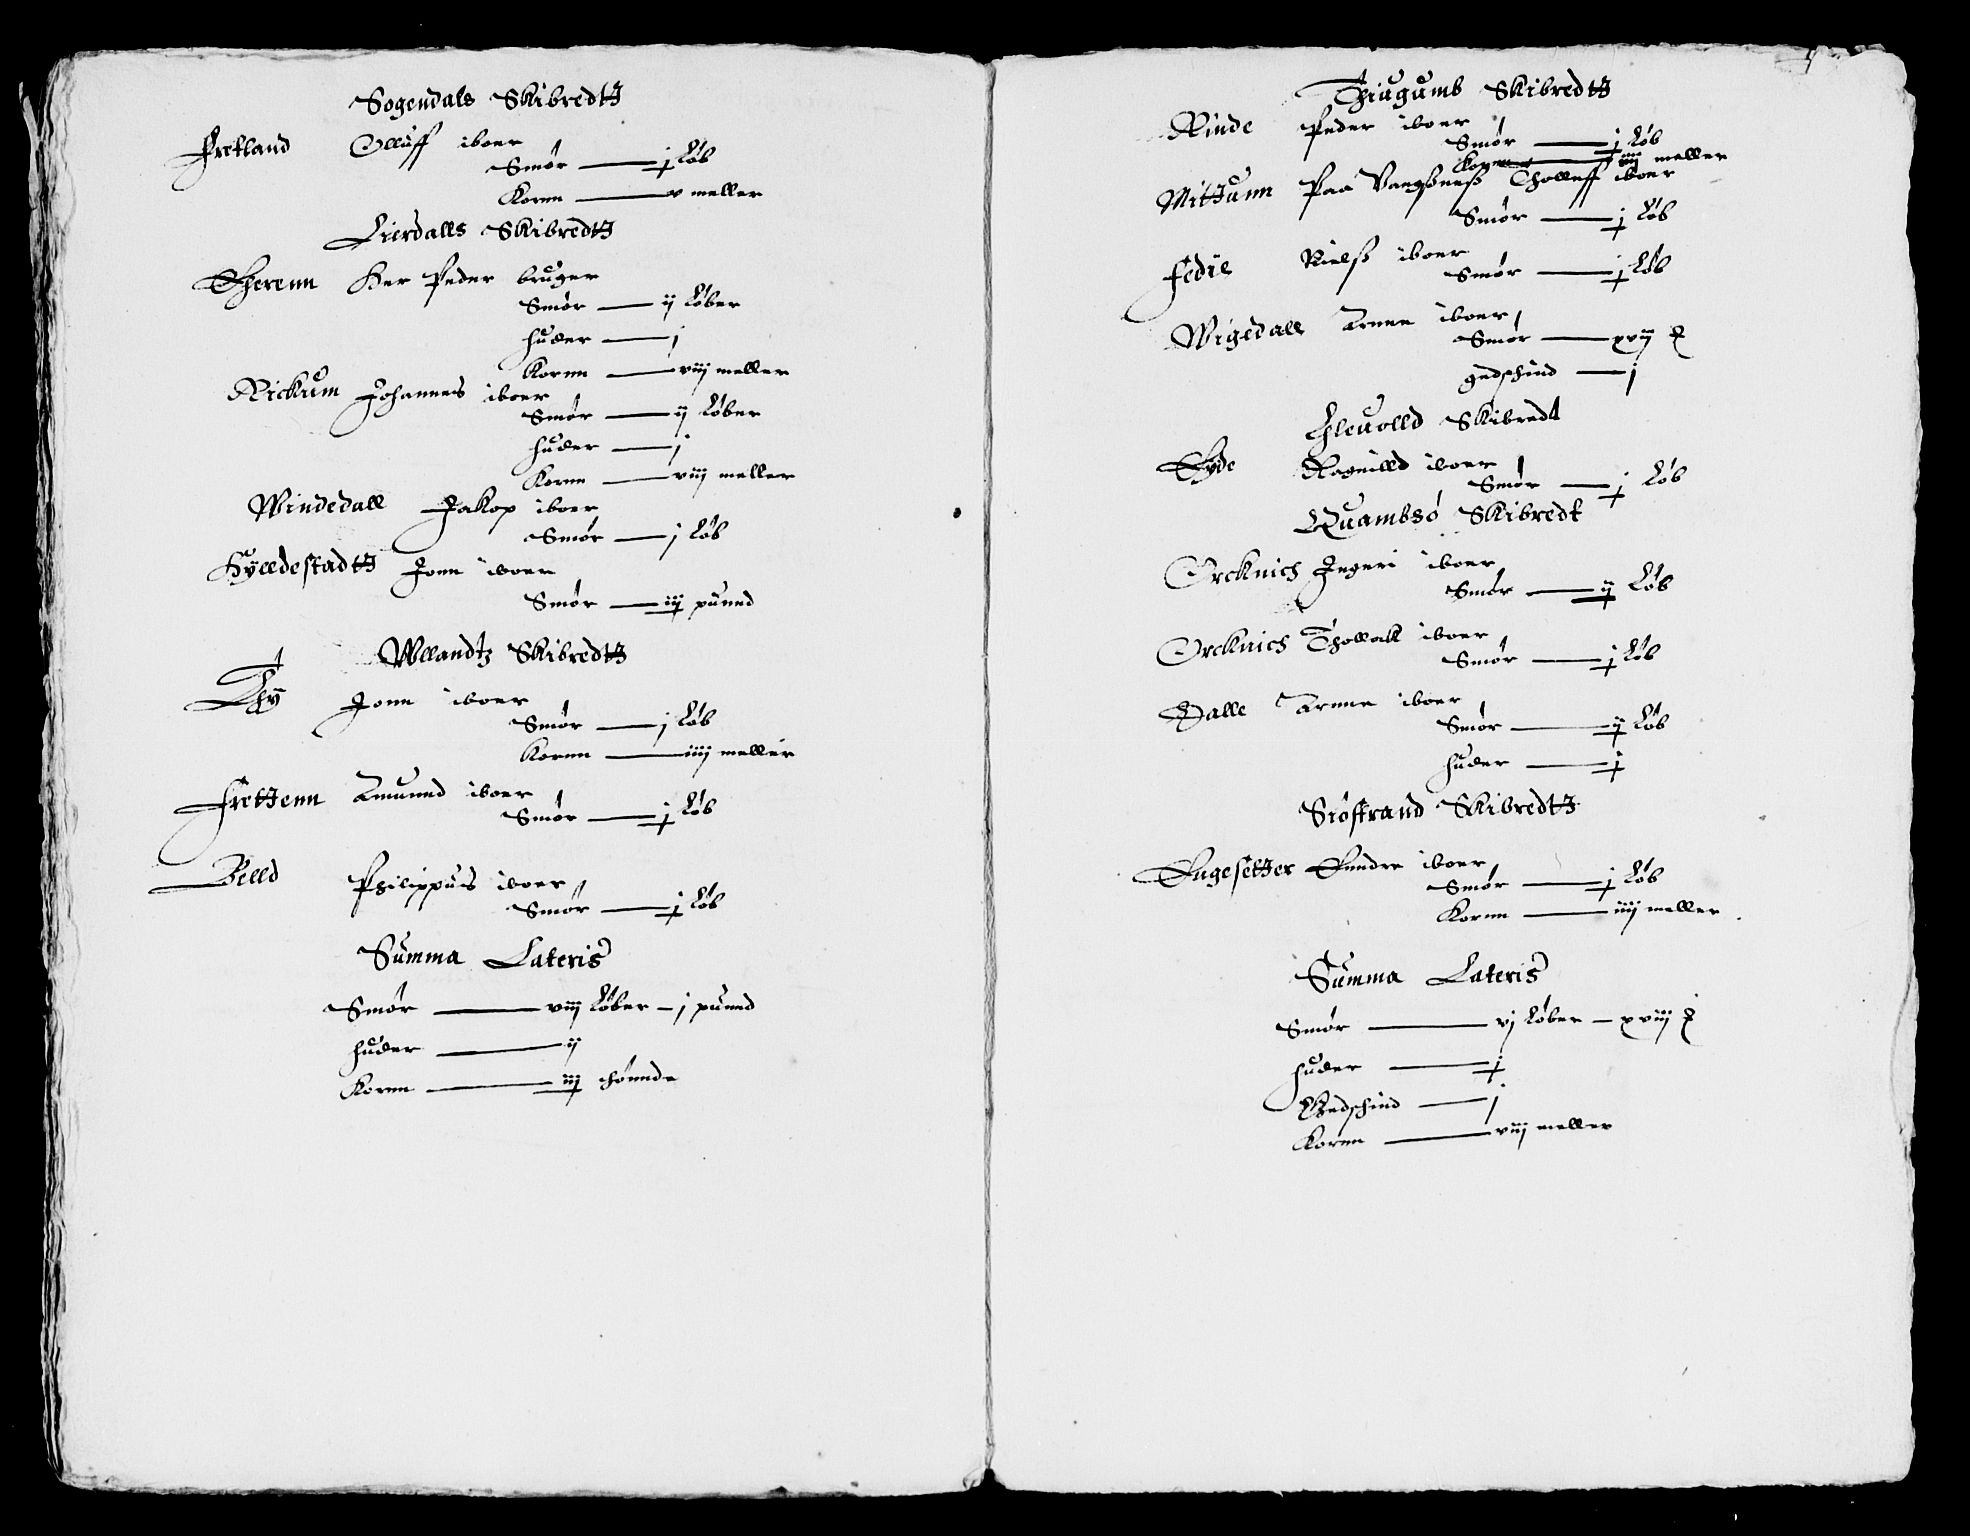 Sogendals Skibredtz
Fretland Olluff iboer
Smør — j Løb
Kornn — v meller
Lierdalls Skibredtz
Therenn Her Peder bruger
Smør — ij Løber
huder — j
Kornn — viij meller
Rickum Johannes iboer
Smør — ij Løber
huder — j
Kornn — viij meller
Windedall Jakop iboer
Smør — j Løb
Hylldestadtz Jonn iboer
Smør — iij punnd
Wllandtz Skibredtz
Thy Jonn iboer
Smør — j Løb
Kornn — iiij meller
Frettenn Amunnd iboer
Smør — j Løb
Belld Philippus iboer
Smør — j Løb
Summa Lateris
Smør — viij Løber — j punnd
huder — ij
Kornn — iij thønnde
Thiugumb Skibredtz
Rinde Peder iboer
Smør — j Løb
Kornn — iiij meller
Mittunn Paa Vangssness Tholleff iboer
Smør — j Løb
Fedie Nielss iboer
Smør — j Løb
Wigedall Arnne iboer
Smør — xvij
gedschind — j
Hleuolld Skibredt
Eyde Ragnilld iboer
Smør — j Løb
Quambsø Skibredt
Orcknich Ingeri iboer
Smør — ij Løb
Orcknich Thollall iboer
Smør — j Løb
Dalle Arnne iboer
Smør — ij Løb
huder — j
Siøstrand Skibredtz
Engesetter Enndre iboer
Smør — j Løb
Kornn — iiij meller
Summa Lateris
Smør — vj Løber — xviij
huder — j
Gedschind — j
Kornn — viij meller